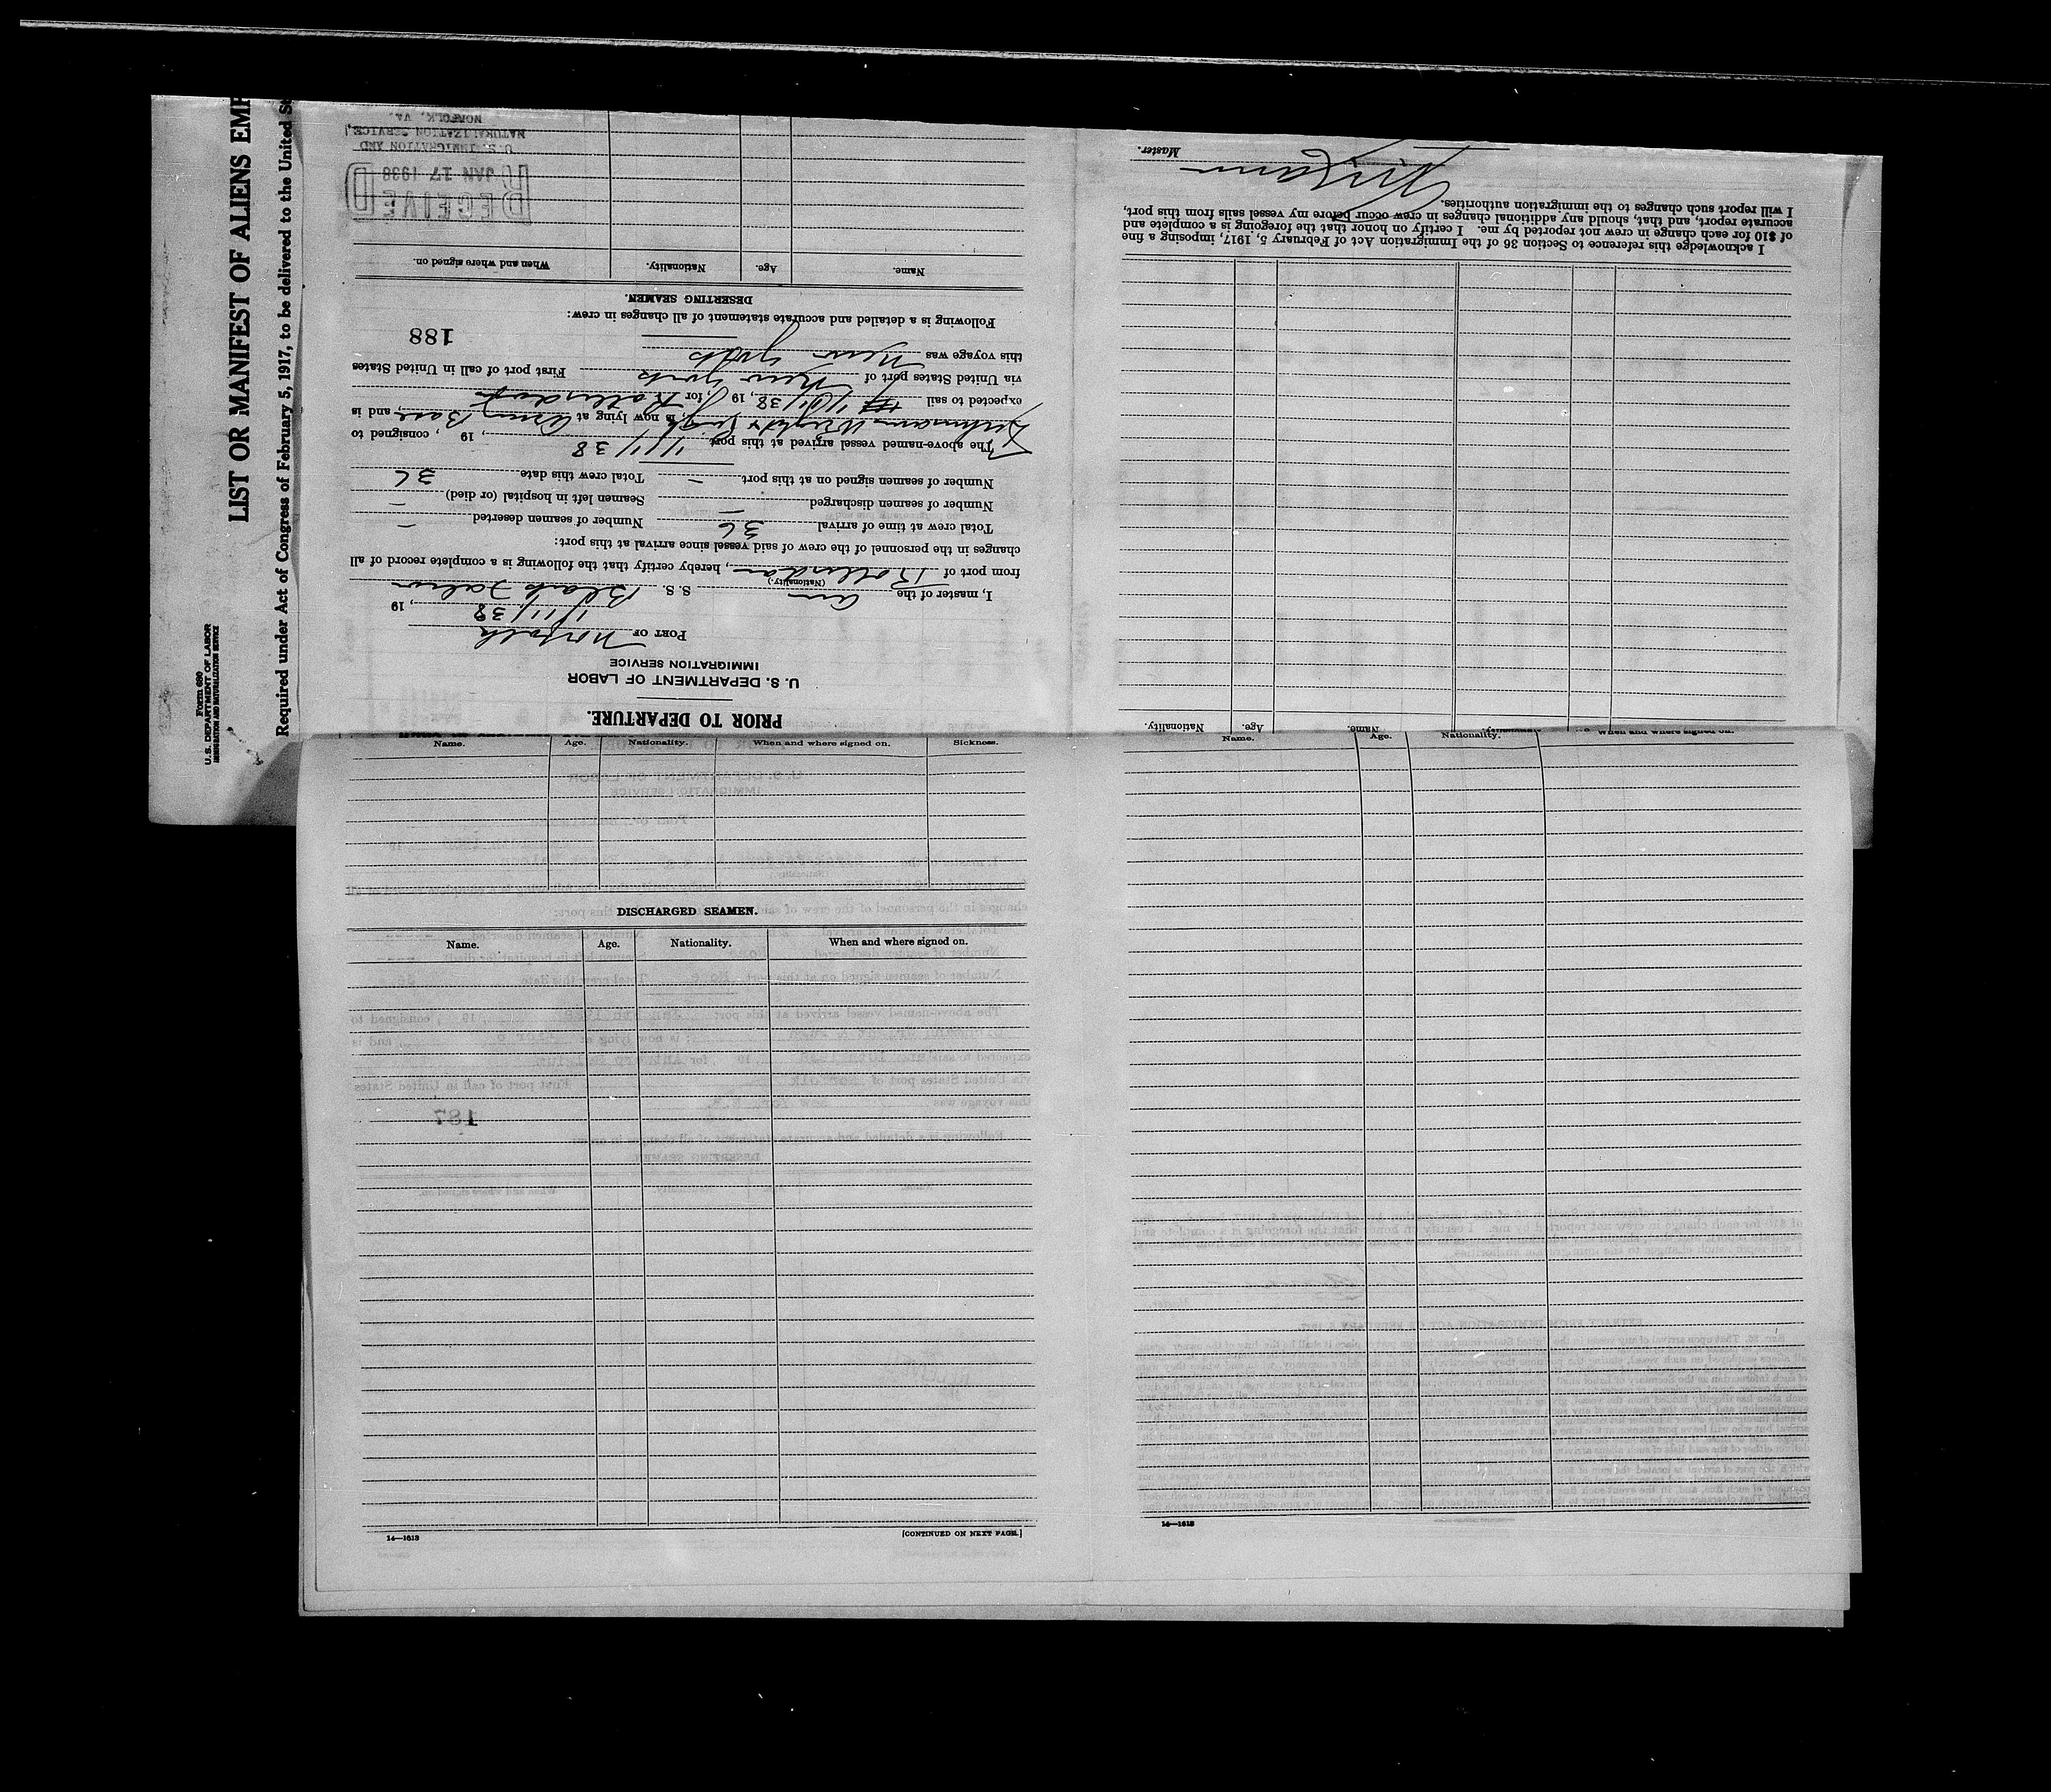 Form 680
U. S. DEPARTMENT OF LABOR
IMMIGRATION AND NATURALIZATION SERVICE
LIST OR MANIFEST OF ALIENS EMP
Required under Act of Congress of February 5, 1917, to be delivered to the United St
PRIOR TO DEPARTURE.
U. S. DEPARTMENT OF LABOR
IMMIGRATION SERVICE
PORT OF Norfolk
1/11/38, 19
I, master of the Am S. S. Black Falcon
(Nationality.)
from port of Rotterdam, hereby certify that the following is a complete record of all
changes in the personnel of the crew of said vessel since arrival at this port:
Total crew at time of arrival 36 Number of seamen deserted –
Number of seamen discharged – Seamen left in hospital (or died) –
Number of seamen signed on at this port – Total crew this date 36
The above-named vessel arrived at this port 1/11/38, 19 , consigned to
Wright &; is now lying at Army Base, and is
expected to sail 1/11/38, 19 , for Rotterdam
via United States port of New York First port of call in United States
this voyage was New York
188
Following is a detailed and accurate statement of all changes in crew:
DESERTING SEAMEN.
Name. Age. Nationality. When and where signed on.
RECEIVED
JAN 17 1938
U. S. IMMIGRATION AND
NATURALIZATION SERVICE,
NORFOLK, VA.
Name. Age. Nationality.
I acknowledge this reference to Section 36 of the Immigration Act of February 5, 1917, imposing a fine
of $10 for each change in crew not reported by me. I certify on honor that the foregoing is a complete and
accurate report, and that, should any additional changes in crew occur before my vessel sails from this port,
I will report such changes to the immigration authorities.
Master.
Name. Age. Nationality. When and where signed on. Sickness.
DISCHARGED SEAMEN.
Name. Age. Nationality. When and where signed on.
14—1613 [CONTINUED ON NEXT PAGE.]
Name. Age. Nationality. When and where signed on.
14—1613